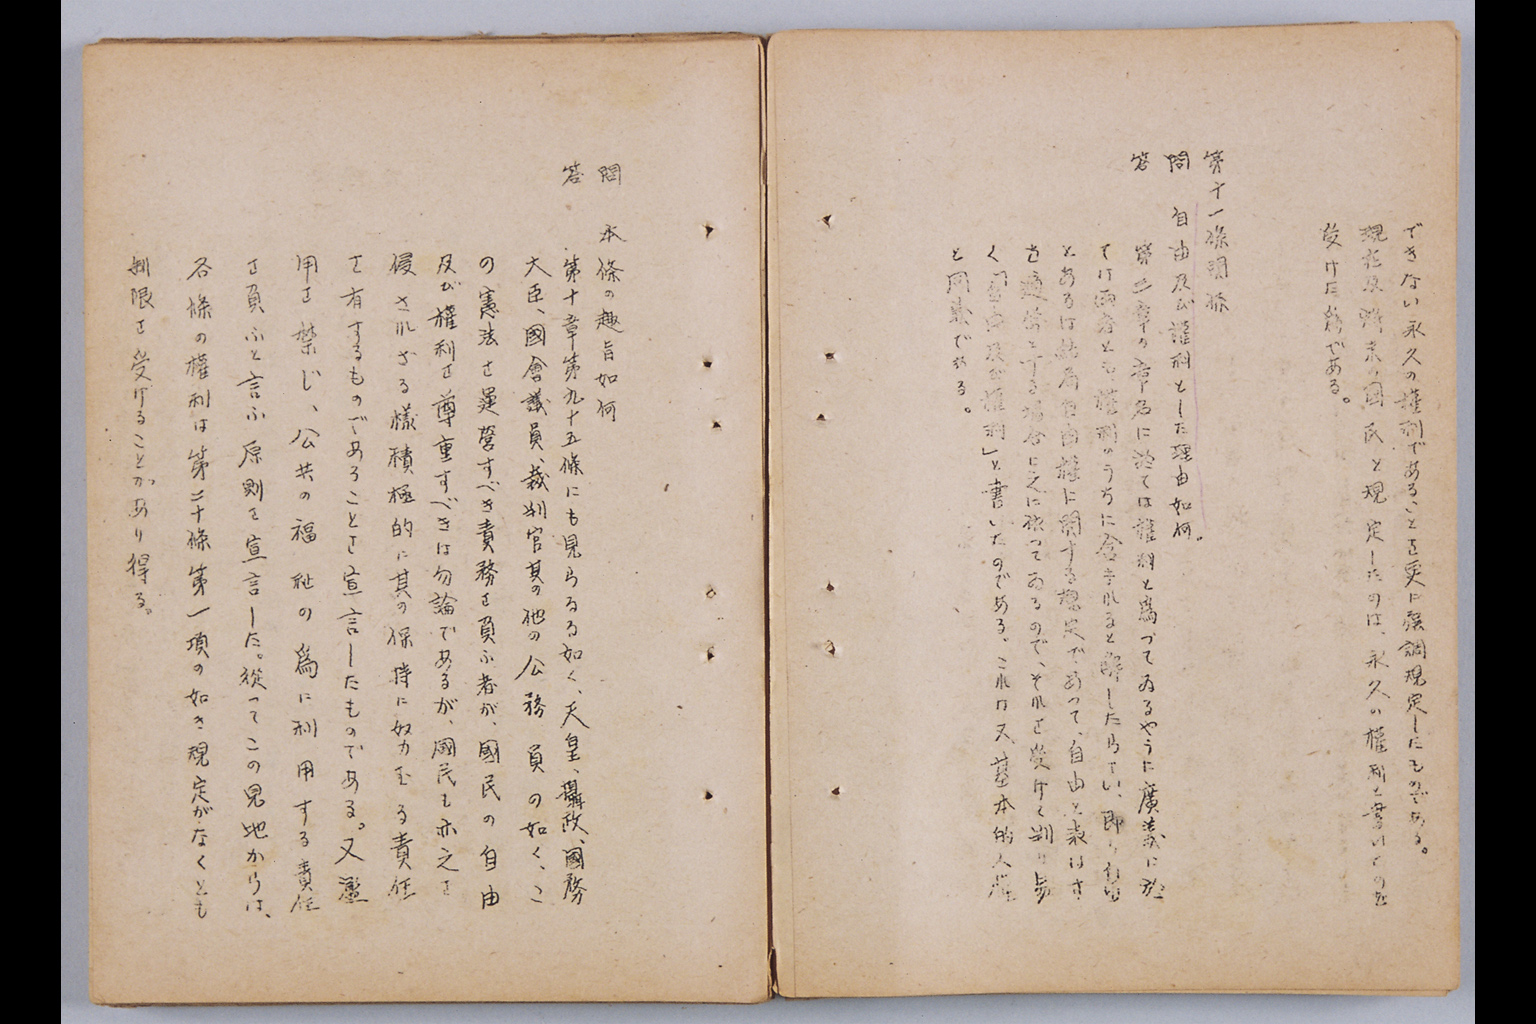 できない永久の權利であることを更に强調規定したものである。
現在及將來の國民と規定したのは、永久の權利と書いたのを
受けた爲である。
第十一條關係
問 自由及び權利とした理由如何。
答 第三章の章名に於ては權利と爲つてゐるやうに廣義に於
ては兩者とも、權利のうちに含まれると解したらよい、即ち自由
とあるは結局自由權に關する規定であつて、自由と表はす
を適當とする場合に之に依つてゐるので、それを受けて判り易
く「自由及び權利」と書いたのである。これは又、基本的人權
と同義である。
問 本條の趣旨如何
答 第十章第九十五條にも見らるる如く、天皇、攝政、國務
大臣、國會議員、裁判官其の他の公務員の如く、こ
の憲法を運營すべき責務を負ふ者が、國民の自由
及び權利を尊重すべきは勿論であるが、國民も亦之を
侵されざる樣積極的に其の保持に努力する責任
を有するものであることを宣言したものである。又濫
用を禁じ、公共の福祉の爲に利用する責任
を負ふと言ふ原則を宣言した。從つてこの見地からは、
各條の權利は第二十條第一項の如き規定がなくとも
制限を受けることがあり得る。